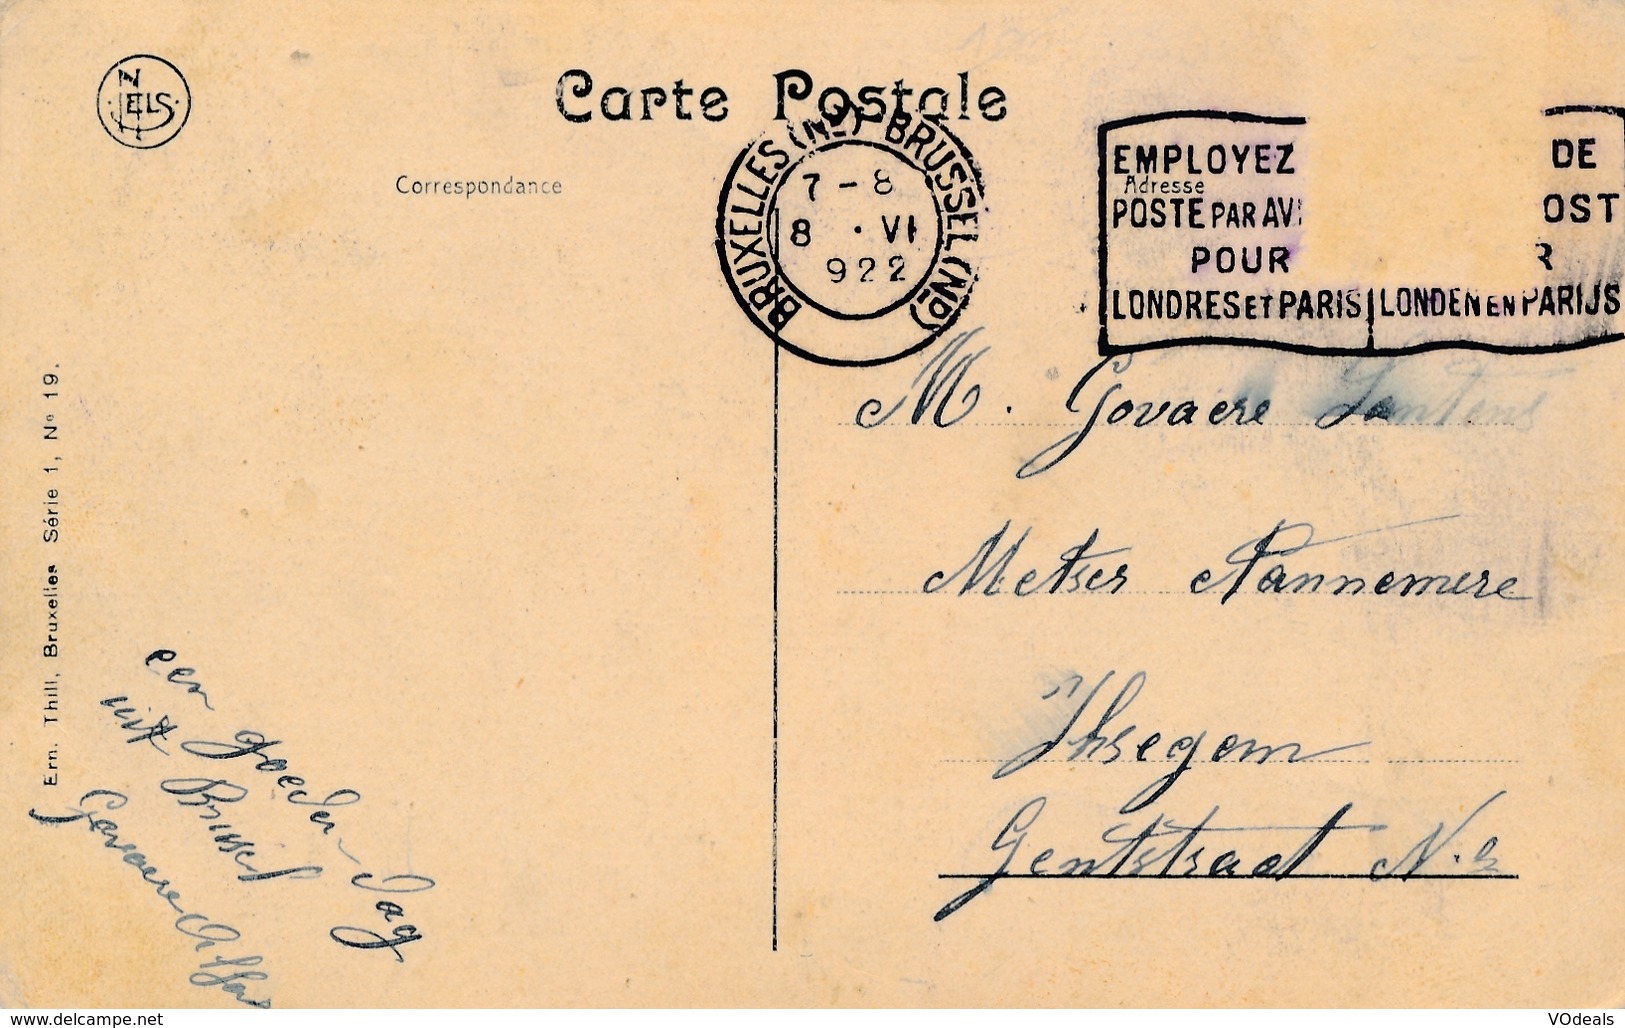 NELS
Carte Postale
Correspondance
Adresse
BRUXELLES (Nd) BRUSSEL (Nd)
7 - 8
8 · VI
922
EMPLOYEZ DE
POSTE PAR AV OST
POUR R
LONDRES ET PARIS LONDEN EN PARIJS
M. Govaere Lantens
Metser
Gentstraat N.
een goeden dag
uit Brussel
Govaere
Ern. Thill, Bruxelles Série 1, No 19.
www.delcampe.net
VOdeals